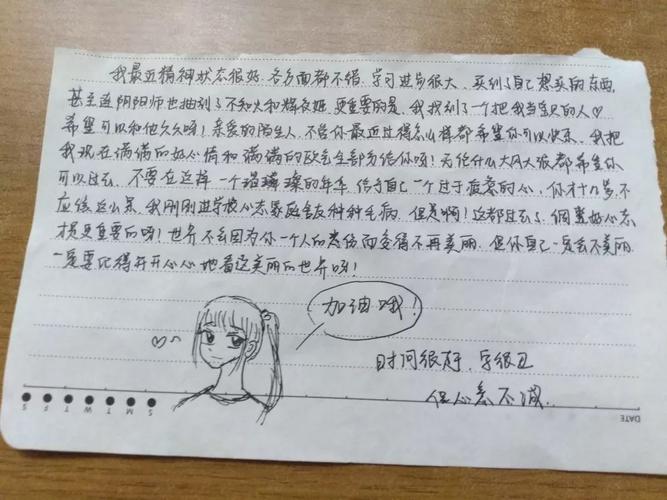 我最近精神状态很好.各方面都不错.学习进步很大.买到了自己想买的东西.
甚至连阴阳师也抽到了不知火和辉夜姬.更重要的是.我找到了一个把我当宝的人♡
希望可以和他久久呀!亲爱的陌生人.不管你最近过得怎么样都希望你可以快乐.我把
我现在满满的好心情和满满的欧气全部分给你呀!无论什么大风大浪都希望你
可以过去.不要在这样一个璀璨的年华.给予自己一个过于疲惫的心.你才十几岁.不
应该这么累.我刚刚进学校心态家庭室友种种毛病.但是啊!这都过去了.调整好心态
才是更重要的呀!世界不会因为你一个人的悲伤而变得不再美丽.但你自己一定会不美丽.
一定要记得开开心心地看这美丽的世界呀!
加油哦!
时间很赶.字很丑
但心意不减.
S M T W T F S
DATE